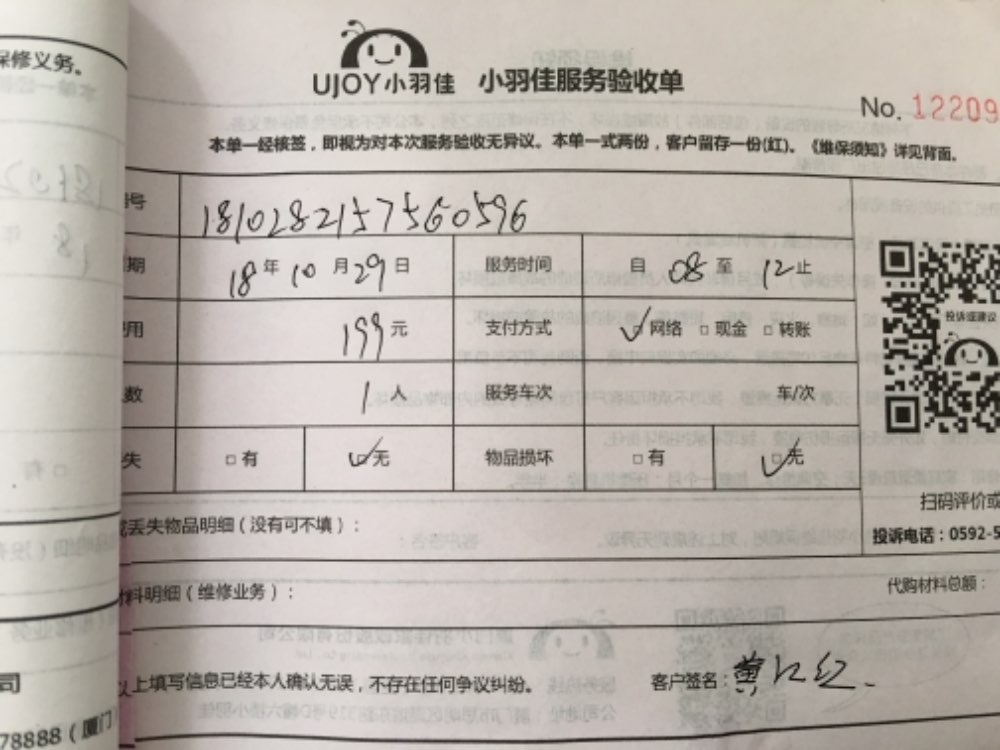 保修义务。
UJOY小羽佳 小羽佳服务验收单
No. 12209
本单一经核签，即视为对本次服务验收无异议。本单一式两份，客户留存一份(红)。《维保须知》详见背面。
号 1810282157560596
期 18年10月29日 服务时间 自08至12止
用 199元 支付方式 ☑网络 □现金 □转账
数 1人 服务车次 车/次
失 □有 ☑无 物品损坏 □有 ☑无
投诉或建议
扫码评价或
投诉电话：0592-5
或丢失物品明细（没有可不填）：
材料明细（维修业务）： 代购材料总额：
以上填写信息已经本人确认无误，不存在任何争议纠纷。 客户签名：黄江红
司
78888（厦门